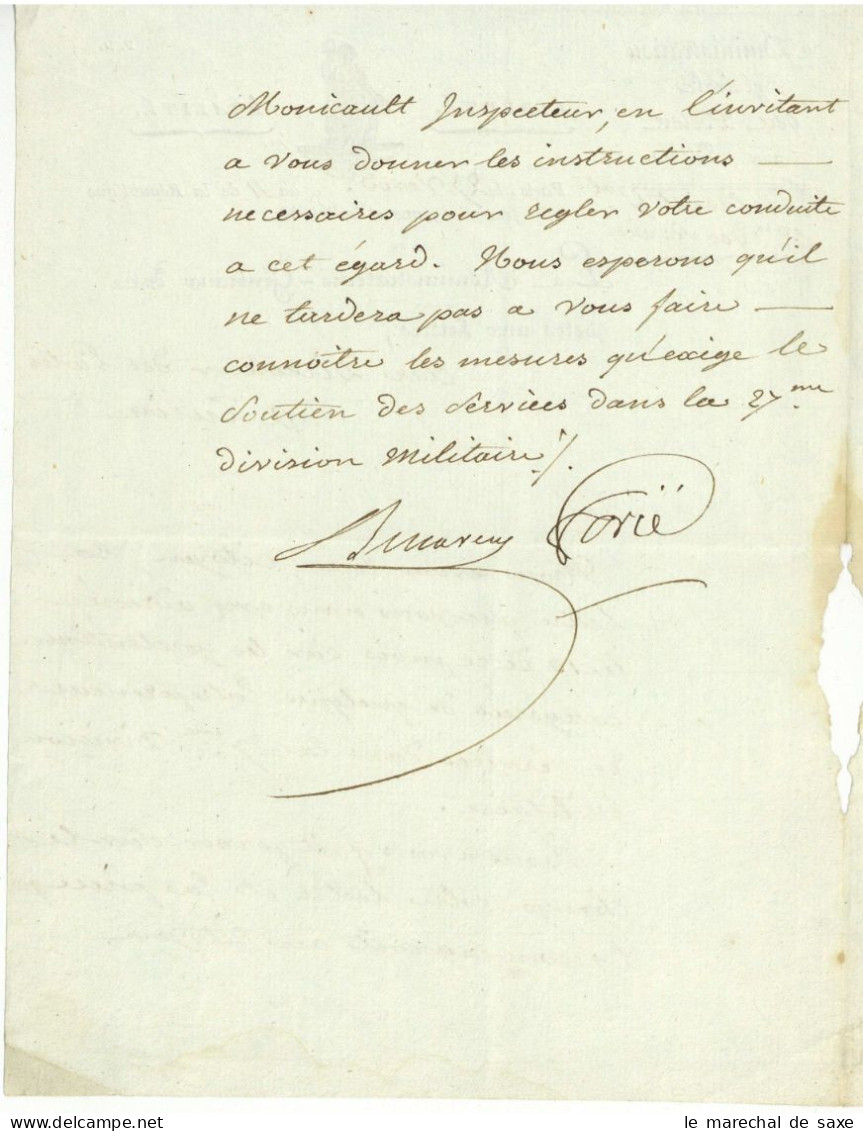 Monicault Inspecteur, en l'invitant
a vous donner les instructions —
necessaires pour regler votre conduite
a cet égard. Nous esperons qu'il
ne tardera pas a vous faire —
connoitre les mesures qu'exige le
Soutien des Services dans la 27.me
division Militaire ./.
Forié
le marechal de saxe